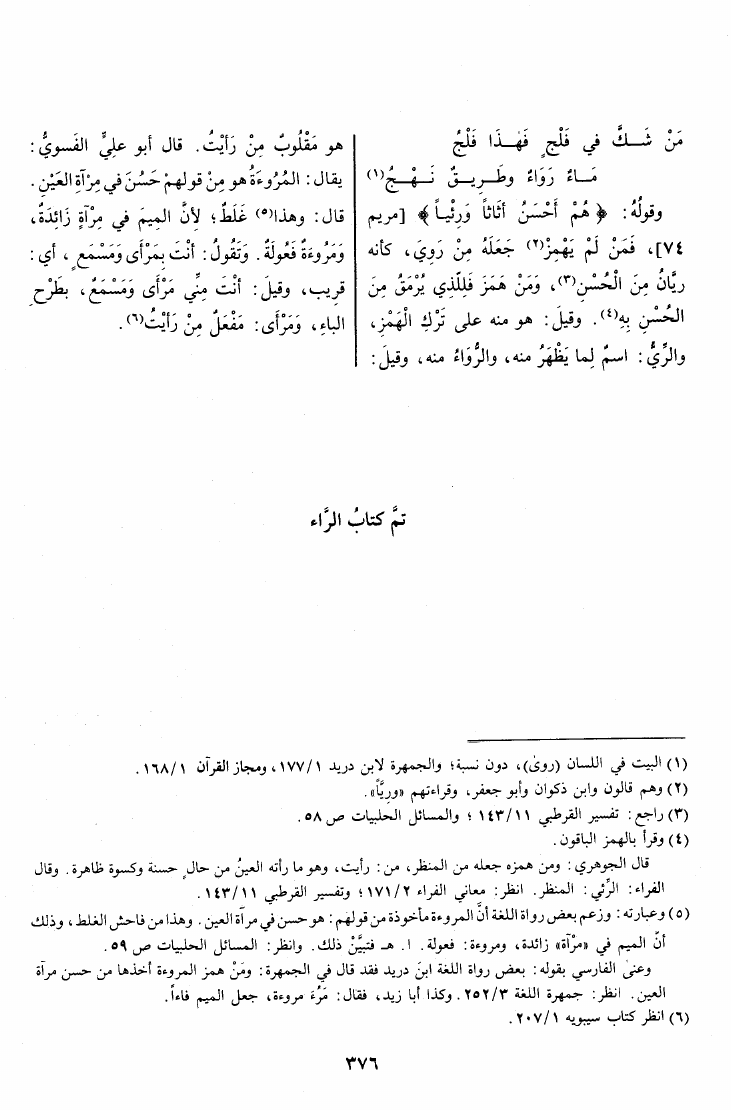 مَنْ شَـــكَّ في فَلْجٍ فَهْـــذَا فَلْجُ
مَـــاءٌ رَوَاءٌ وطَـرِيـــقٌ نَـهْـــجُ(١)
وقولُهُ: ﴿هُمْ أَحْسَنُ أَثَاثاً وَرِئْيـاً﴾ [مريم
٧٤]، فَمَنْ لَمْ يَهْمِزْ(٢) جَعَلَهُ مِنْ رَوِيَ، كأنه
ريَّانُ مِنَ الْحُسْنِ(٣)، وَمَنْ هَمَزَ فَلِلَّذِي يُرْمَقُ مِنَ
الحُسْنِ بِهِ(٤). وقيلَ: هو منه على تَرْكِ الْهَمْزِ،
والرِّيُّ: اسمٌ لِما يَظْهَرُ منه، والرُّوَاءُ منه، وقيلَ:
هو مَقْلُوبٌ مِنْ رَأَيْتُ. قال أبو عليٍّ الفَسويُّ:
يقال: المُرُوءَةُ هو مِنْ قولهمْ حَسُنَ في مِرْآةِ العَيْنِ.
قال: وهذا(٥) غَلَطٌ؛ لأنَّ الميمَ في مِرْآةٍ زَائِدَةٌ،
وَمَرُوءَةٌ فَعُولَةٌ. وَتَقُولُ: أَنْتَ بِمَرْأى وَمَسْمَعٍ، أي:
قريب، وقيلَ: أنْتَ مِنِّي مَرْأى وَمَسْمَعٌ، بطَرْحِ
الباءِ، وَمَرْأى: مَفْعَلٌ مِنْ رَأَيْتُ(٦).
تمَّ كتابُ الرَّاء
(١) البيت في اللسان (روى)، دون نسبة؛ والجمهرة لابن دريد ١/١٧٧، ومجاز القرآن ١/١٦٨.
(٢) وهم قالون وابن ذكوان وأبو جعفر، وقراءتهم «وريّاً».
(٣) راجع: تفسير القرطبي ١١/١٤٣؛ والمسائل الحلبيات ص ٥٨.
(٤) وقرأ بالهمز الباقون.
قال الجوهري: ومن همزه جعله من المنظر، من: رأيت، وهو ما رأته العينُ من حالٍ حسنة وكسوة ظاهرة. وقال
الفراء: الرِّئي: المنظر. انظر: معاني الفراء ٢/١٧١؛ وتفسير القرطبي ١١/١٤٣.
(٥) وعبارته: وزعم بعض رواة اللغة أنَّ المروءة مأخوذة من قولهم: هو حسن في مرآة العين. وهذا من فاحش الغلط، وذلك
أنّ الميم في «مرْآة» زائدة، ومروءة: فعولة. ا. هـ فتبيَّنْ ذلك. وانظر: المسائل الحلبيات ص ٥٩.
وعنى الفارسي بقوله: بعض رواة اللغة ابنَ دريد فقد قال في الجمهرة: ومَنْ همز المروءة أخذها من حسن مرآة
العين. انظر: جمهرة اللغة ٣/٢٥٢. وكذا أبا زيد، فقال: مَرُءَ مروءة، جعل الميم فاءاً.
(٦) انظر كتاب سيبويه ١/٢٠٧.
٣٧٦